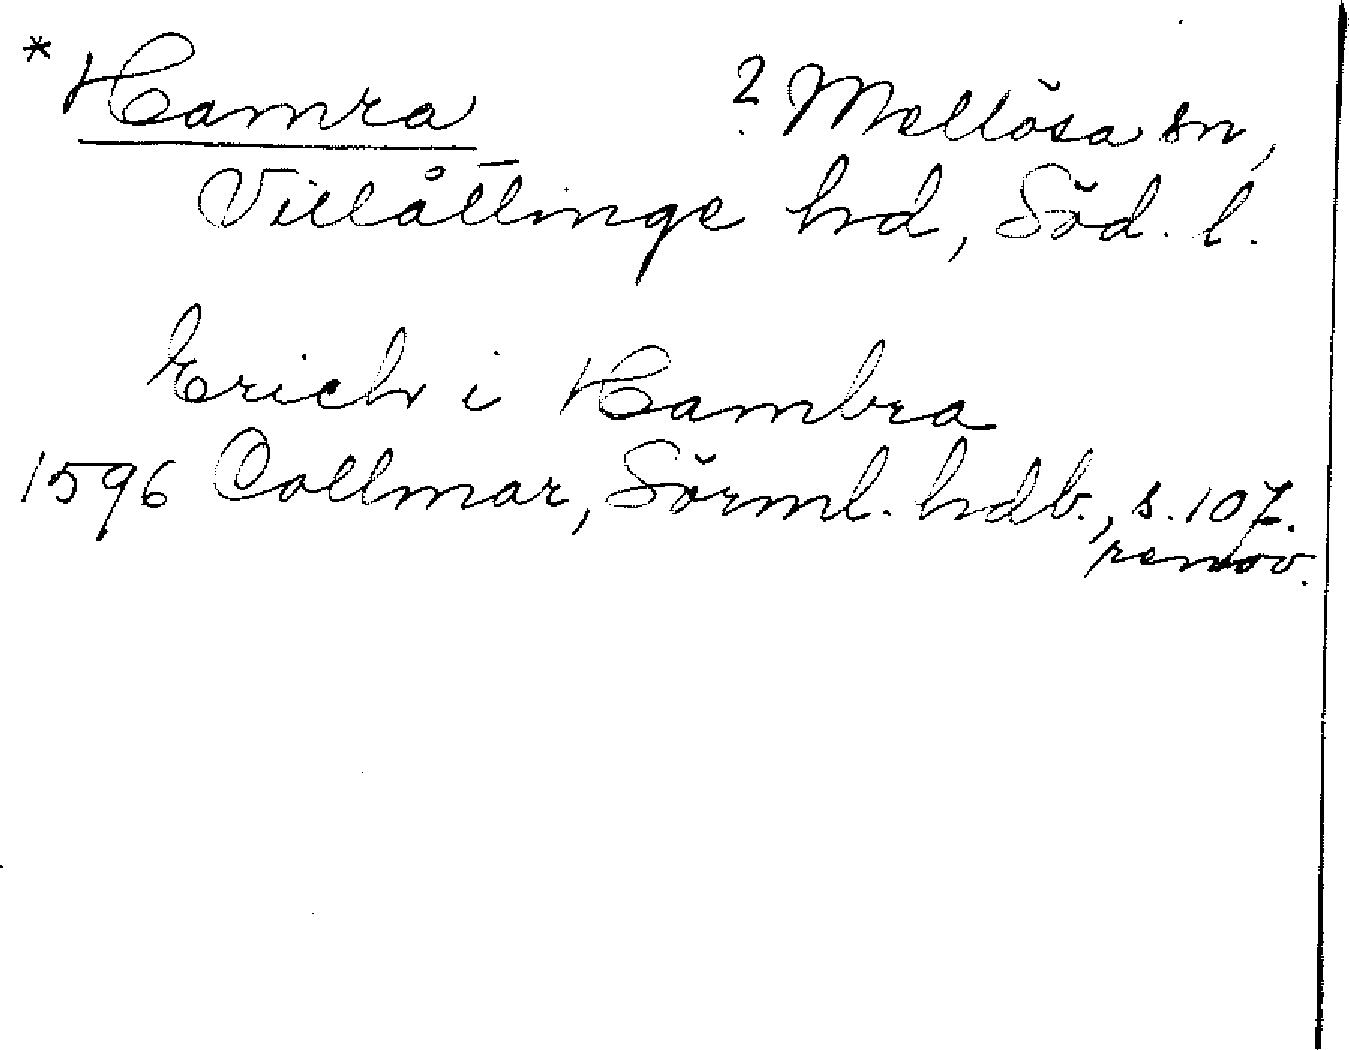 * Hamra ? Mellösa sn,
Villåttinge hd, Söd. l.
Erich i Hambra
1596 Collmar, Sörml. hdb., s. 107.
renov.